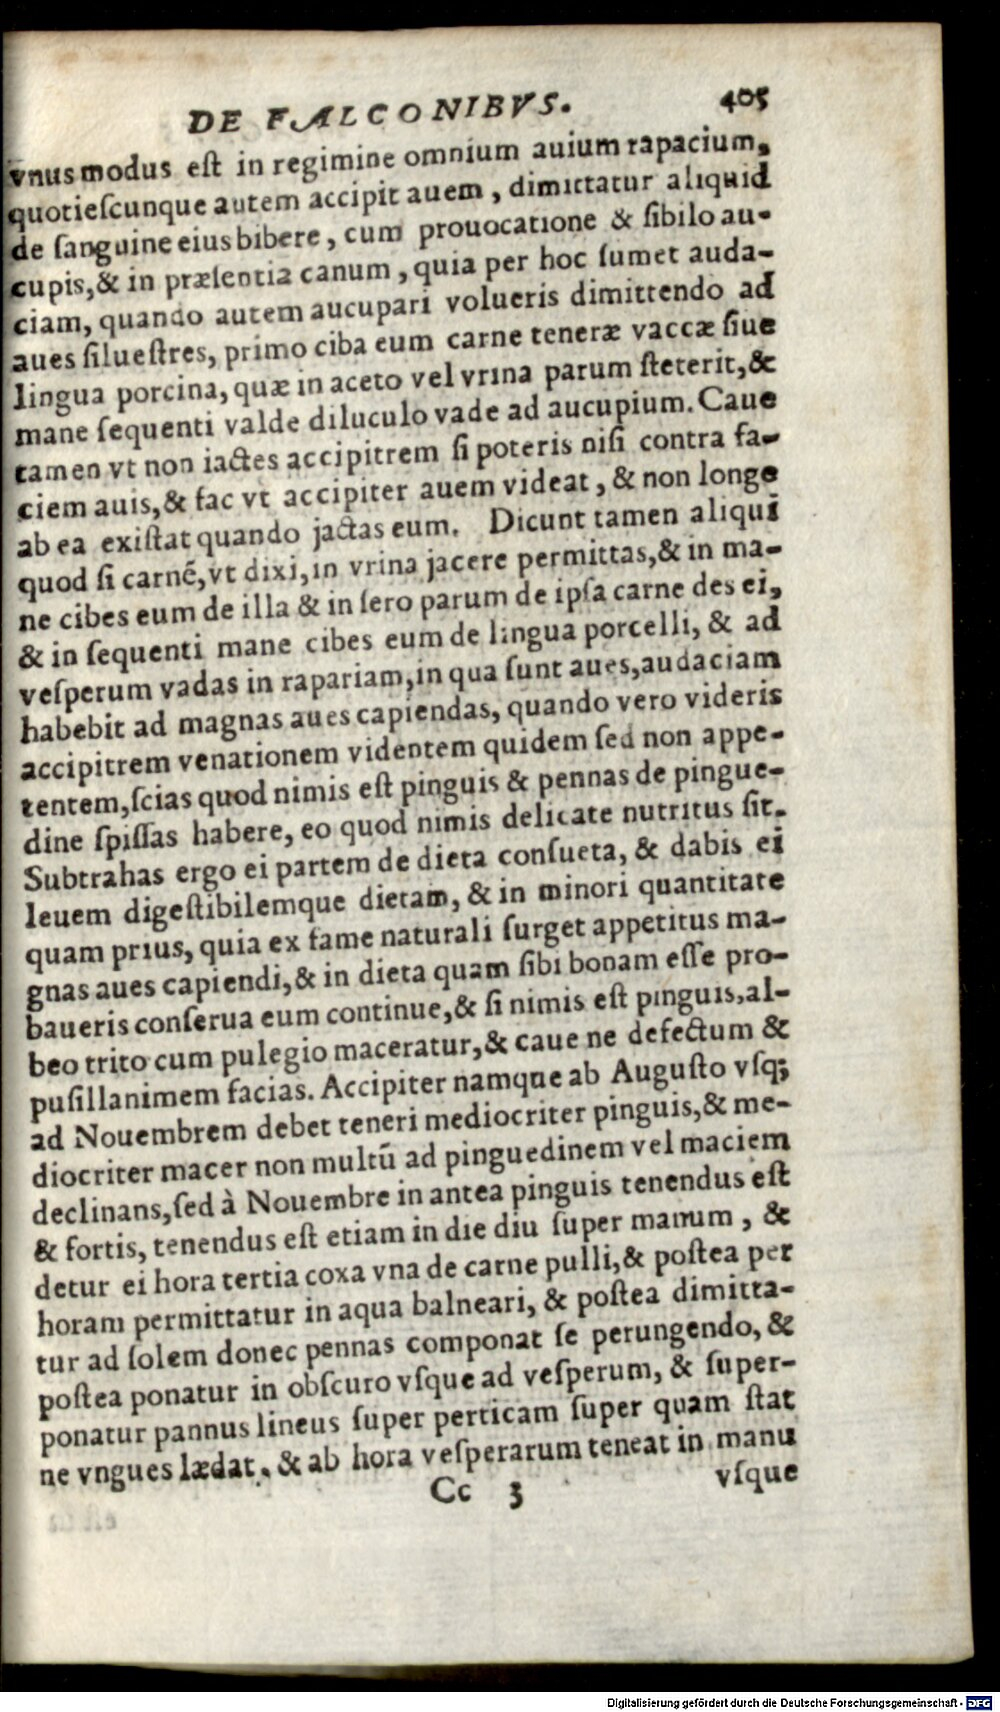 DE FALCONIBVS. 405
vnus modus eſt in regimine omnium auium rapacium,
quotieſcunque autem accipit auem, dimittatur aliquid
de ſanguine eius bibere, cum prouocatione & ſibilo au-
cupis, & in præſentia canum, quia per hoc ſumet auda-
ciam, quando autem aucupari volueris dimittendo ad
aues ſilueſtres, primo ciba eum carne teneræ vaccæ ſiue
lingua porcina, quæ in aceto vel vrina parum ſteterit, &
mane ſequenti valde diluculo vade ad aucupium. Caue
tamen vt non iactes accipitrem ſi poteris niſi contra fa-
ciem auis, & fac vt accipiter auem videat, & non longe
ab ea exiſtat quando jactas eum. Dicunt tamen aliqui
quod ſi carnẽ, vt dixi, in vrina jacere permittas, & in ma-
ne cibes eum de illa & in ſero parum de ipſa carne des ei,
& in ſequenti mane cibes eum de lingua porcelli, & ad
veſperum vadas in rapariam, in qua ſunt aues, audaciam
habebit ad magnas aues capiendas, quando vero videris
accipitrem venationem videntem quidem ſed non appe-
tentem, ſcias quod nimis eſt pinguis & pennas de pingue-
dine ſpiſſas habere, eo quod nimis delicate nutritus ſit.
Subtrahas ergo ei partem de dieta conſueta, & dabis ei
leuem digeſtibilemque dietam, & in minori quantitate
quam prius, quia ex fame naturali ſurget appetitus ma-
gnas aues capiendi, & in dieta quam ſibi bonam eſſe pro-
baueris conſerua eum continue, & ſi nimis eſt pinguis, al-
beo trito cum pulegio maceratur, & caue ne defectum &
puſillanimem facias. Accipiter namque ab Auguſto vſq;
ad Nouembrem debet teneri mediocriter pinguis, & me-
diocriter macer non multũ ad pinguedinem vel maciem
declinans, ſed à Nouembre in antea pinguis tenendus eſt
& fortis, tenendus eſt etiam in die diu ſuper manum, &
detur ei hora tertia coxa vna de carne pulli, & poſtea per
horam permittatur in aqua balneari, & poſtea dimitta-
tur ad ſolem donec pennas componat ſe perungendo, &
poſtea ponatur in obſcuro vſque ad veſperum, & ſuper-
ponatur pannus lineus ſuper perticam ſuper quam ſtat
ne vngues lædat, & ab hora veſperarum teneat in manu
Cc 3 vſque
Digitalisierung gefördert durch die Deutsche Forschungsgemeinschaft - DFG